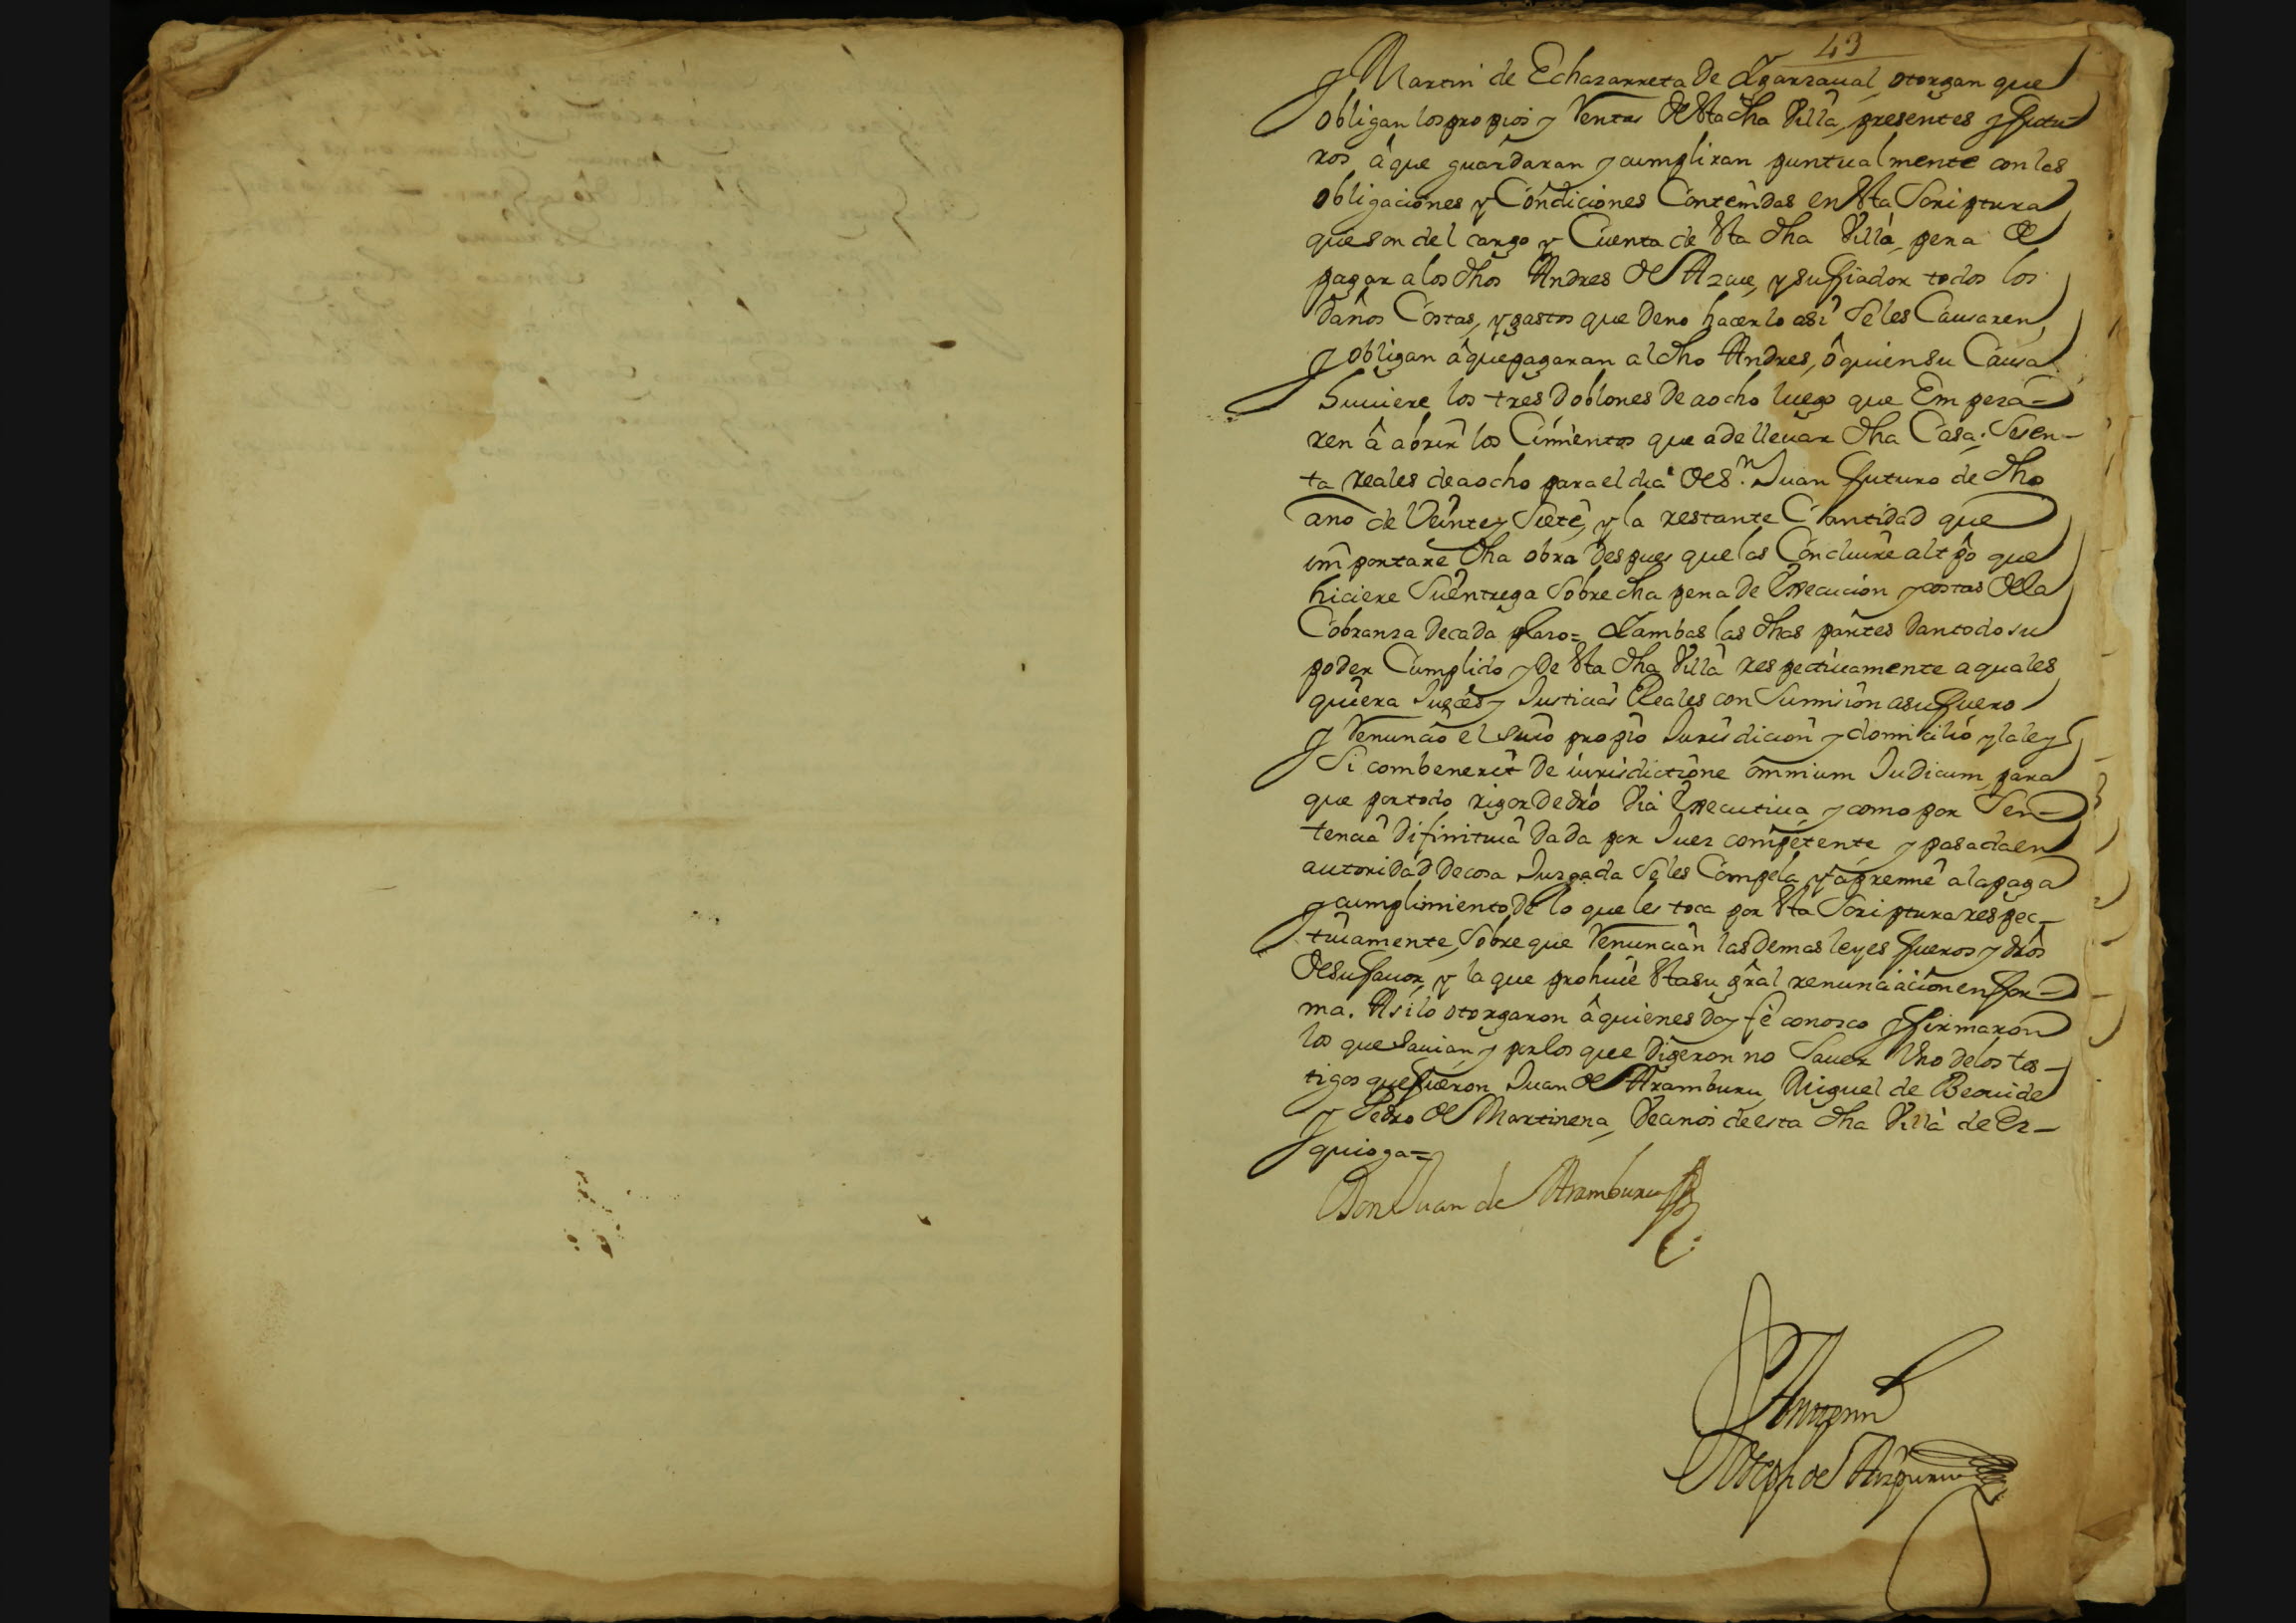 43
y Martin de Echazarreta de Ygarzaual, otorgan que
obligan los propios y Rentas de Sta dha Villa, presentes y futu-
ros â que guardaran y cumpliran puntualmente con las
obligaciones y Condiciones Contenidas en Sta Scriptura
que son del cargo y Cuenta de Sta dha Villa, pena de
pagar a los dhos Andres de Azcue, y su fiador todos los
daños Costas, y gastos que de no hacerlo asi se les Causaren,
y obligan â que pagaran al dho Andres, ô quien su Causa
huuiere los tres doblones de a ocho luego que Empeza-
ren â abrir los Cimientos que a de lleuar dha Casa. Sesen-
ta reales de a ocho para el dia de Sn. Juan futuro de dho
año de Veinte y Siete, y la restante Cantidad que
importare dha obra despues que las Concluire al tpo que
hiciere Su entrega Sobre dha pena de Execucion y costas de la
Cobranza de cada plazo= Y ambas las dhas partes dan todo su
poder Cumplido y de Sta dha Villa respectiuamente a quales
quiera Jueces y Justicias Reales con Sumision a su fuero
y Renuncio el suio propio Jurisdicion y domicilio y la ley
Si combenerit de iurisdictione omnium Judicum, para
que por todo rigor de dro Via Executiua y como por Sen-
tencia difinitiua dada por Juez competente y pasada en
autoridad de cosa Juzgada se les Compela y apremie a la paga
y cumplimiento de lo que les toca por Sta Scriptura respec-
tiuamente, Sobre que Renuncian las demas leyes fueros y dros
de su fauor, y la que prohiue Sta su gral renunciacion en for-
ma. Asi lo otorgaron â quienes doy fe conozco y firmaron
los que sauian y por los que digeron no Sauer Vno de los tes-
tigos que fueron Juan de Aramburu, Miguel de Beouide
y Pedro de Martinena, Vecinos de esta dha Villa de Ez-
quioga=
Don Juan de Aramburu
Ante mi
Joseph de Aizpuru